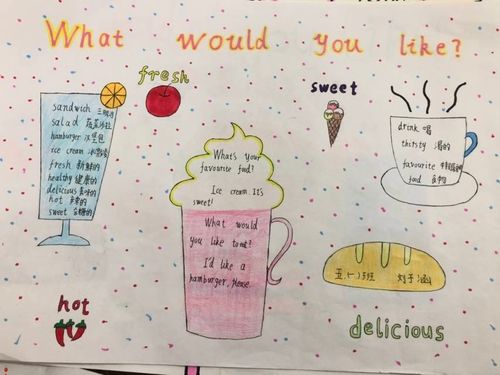 What would you like?
fresh
sweet
sandwich 三明治
salad 蔬菜沙拉
hamburger 汉堡包
ice cream 冰淇淋
fresh 新鲜的
healthy 健康的
delicious 美味的
hot 辣的
sweet 甜的
What's your
favourite food?
Ice cream. It's
sweet!
What would
you like to eat?
I'd like a
hamburger, please.
drink 喝
thirsty 渴的
favourite 特别喜爱的
food 食物
五.(一)班
hot
delicious